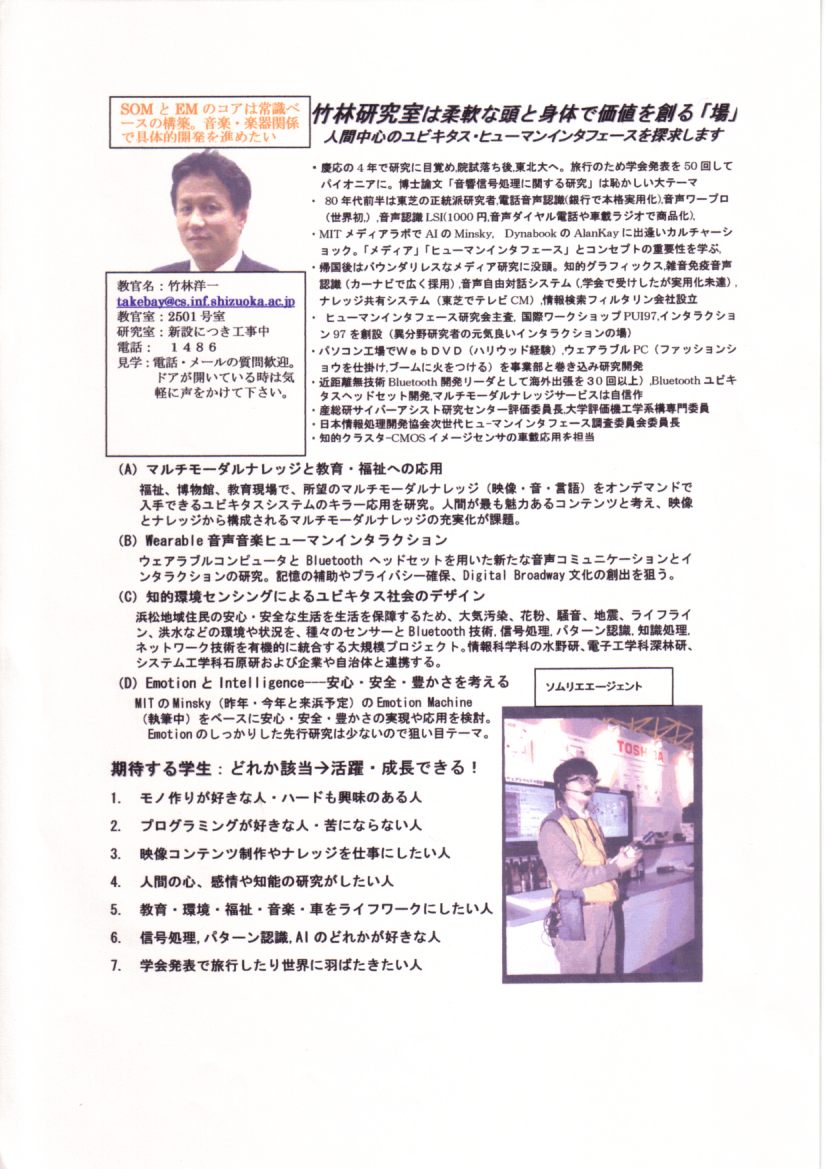 SOM と EM のコアは常識ベ
ースの構築。音楽・楽器関係
で具体的開発を進めたい
竹林研究室は柔軟な頭と身体で価値を創る「場」
人間中心のユビキタス・ヒューマンインタフェースを探求します
・慶応の４年で研究に目覚め,院試落ち後,東北大へ。旅行のため学会発表を 50 回して
パイオニアに。博士論文「音響信号処理に関する研究」は恥かしい大テーマ
・ 80 年代前半は東芝の正統派研究者,電話音声認識(銀行で本格実用化),音声ワープロ
（世界初,）,音声認識 LSI(1000 円,音声ダイヤル電話や車載ラジオで商品化),
・MIT メディアラボで AI の Minsky, Dynabook の AlanKay に出逢いカルチャーシ
ョック。「メディア」「ヒューマンインタフェース」とコンセプトの重要性を学ぶ,
・帰国後はバウンダリレスなメディア研究に没頭。知的グラフィックス,雑音免疫音声
認識（カーナビで広く採用）,音声自由対話システム（,学会で受けしたが実用化未達）,
ナレッジ共有システム（東芝でテレビ CM）,情報検索フィルタリン会社設立
・ ヒューマンインタフェース研究会主査, 国際ワークショップ PUI97,インタラクショ
ン 97 を創設（異分野研究者の元気良いインタラクションの場）
・パソコン工場でＷｅｂＤＶＤ（ハリウッド経験）,ウェアラブル PC（ファッションシ
ョウを仕掛け,ブームに火をつける）を事業部と巻き込み研究開発
・近距離無技術 Bluetooth 開発リーダとして海外出張を３０回以上）,Bluetooth ユビキ
タスヘッドセット開発,マルチモーダルナレッジサービスは自信作
・産総研サイバーアシスト研究センター評価委員長,大学評価機工学系構専門委員
・日本情報処理開発協会次世代ヒュ-マンインタフェース調査委員会委員長
・知的クラスタ-CMOS イメージセンサの車載応用を担当
教官名：竹林洋一
takebay@cs.inf.shizuoka.ac.jp
教官室：2501 号室
研究室：新設につき工事中
電話： １４８６
見学：電話・メールの質問歓迎。
ドアが開いている時は気
軽に声をかけて下さい。
(A) マルチモーダルナレッジと教育・福祉への応用
福祉、博物館、教育現場で、所望のマルチモーダルナレッジ（映像・音・言語）をオンデマンドで
入手できるユビキタスシステムのキラー応用を研究。人間が最も魅力あるコンテンツと考え、映像
とナレッジから構成されるマルチモーダルナレッジの充実化が課題。
(B) Wearable 音声音楽ヒューマンインタラクション
ウェアラブルコンピュータと Bluetooth ヘッドセットを用いた新たな音声コミュニケーションとイ
ンタラクションの研究。記憶の補助やプライバシー確保、Digital Broadway 文化の創出を狙う。
(C) 知的環境センシングによるユビキタス社会のデザイン
浜松地域住民の安心・安全な生活を生活を保障するため、大気汚染、花粉、騒音、地震、ライフライ
ン、洪水などの環境や状況を、種々のセンサーと Bluetooth 技術,信号処理,パターン認識,知識処理,
ネットワーク技術を有機的に統合する大規模プロジェクト。情報科学科の水野研、電子工学科深林研、
システム工学科石原研および企業や自治体と連携する。
(D) Emotion と Intelligence---安心・安全・豊かさを考える
MIT の Minsky（昨年・今年と来浜予定）の Emotion Machine
（執筆中）をベースに安心・安全・豊かさの実現や応用を検討。
Emotion のしっかりした先行研究は少ないので狙い目テーマ。
ソムリエエージェント
TOSHIBA
期待する学生：どれか該当→活躍・成長できる！
1. モノ作りが好きな人・ハードも興味のある人
2. プログラミングが好きな人・苦にならない人
3. 映像コンテンツ制作やナレッジを仕事にしたい人
4. 人間の心、感情や知能の研究がしたい人
5. 教育・環境・福祉・音楽・車をライフワークにしたい人
6. 信号処理,パターン認識,AI のどれかが好きな人
7. 学会発表で旅行したり世界に羽ばたきたい人